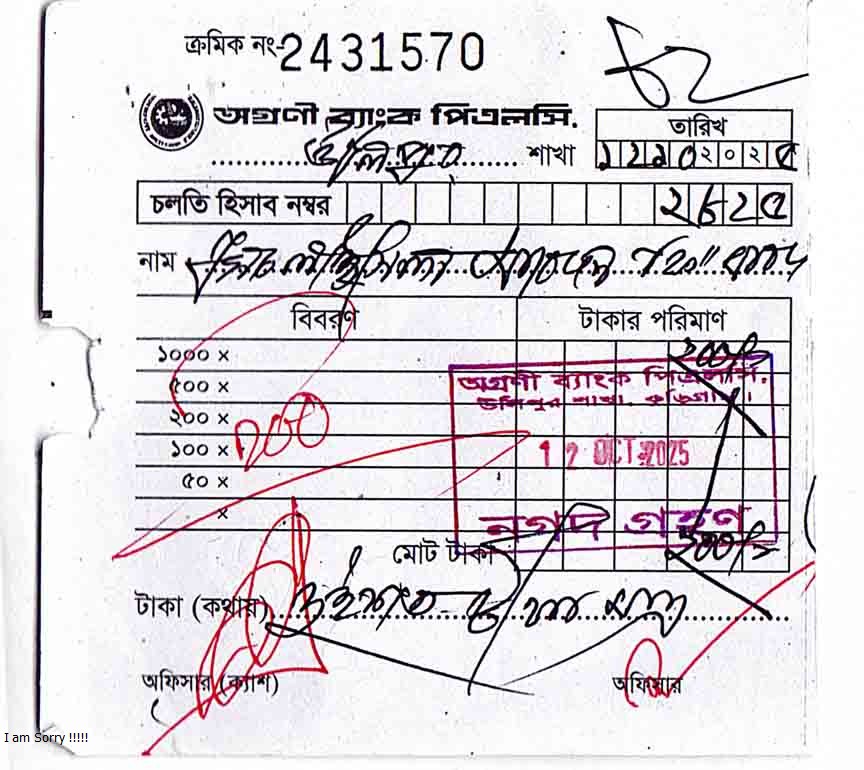 ক্রমিক নং- 2431570
অগ্রণী ব্যাংক পিএলসি.
তারিখ
উলিপুর শাখা
১২১০২০২৫
চলতি হিসাব নম্বর
নাম
বিবরণ টাকার পরিমাণ
১০০০ x ২০০/=
৫০০ x
২০০ x
১০০ x
৫০ x
x
অগ্রণী ব্যাংক পিএলসি.
উলিপুর শাখা, কুড়িগ্রাম।
12 OCT 2025
নগদ গ্রহণ
মোট টাকা ২০০/=
টাকা (কথায়) দুইশত টাকা মাত্র
অফিসার (ক্যাশ) অফিসার
I am Sorry !!!!!